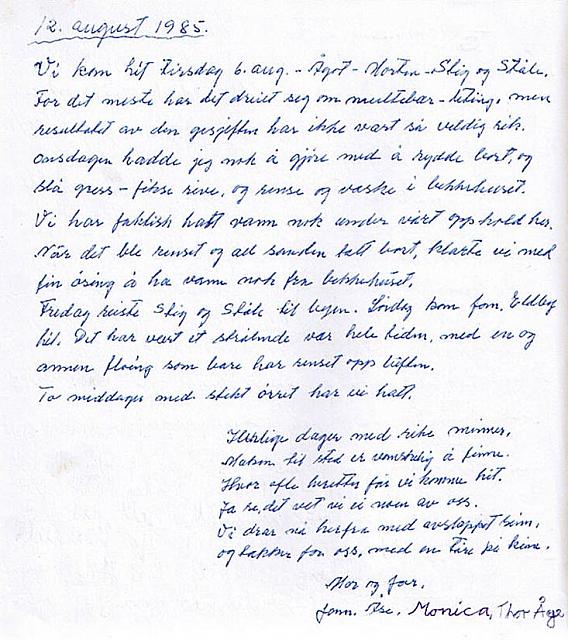 12. august 1985.
Vi kom hit tirsdag 6. aug. - Ågot - Morten - Stig og Ståle.
For det meste har det dreiet seg om multebær-leting, men
resultatet av den geskjeften har ikke vært så veldig rik.
Onsdagen hadde jeg nok å gjøre med å rydde bort, og
slå gress - fikse rive, og rense og vaske i bekkehuset.
Vi har faktisk hatt vann nok under vårt opphold her.
Når det ble renset og all sanden tatt bort, klarte vi med
fin ósing å ha vann nok fra bekkehuset.
Fredag reiste Stig og Ståle til byen. Lördag kom fam. Eldby
hit. Det har vært et strålende vær hele tiden, med en og
annen flóing som bare har renset opp luften.
To middager med stekt örret har vi hatt.
Herlige dager med rike minner,
Maken til sted er vanskelig å finne.
Hvor ofte heretter får vi komme hit.
Ja se, det vet vi ei noen av oss.
Vi drar nå herfra med avslappet sinn,
og takker for oss, med en tåre på kinn.
Mor og far.
fam. Åse, Monica, Thor Åge